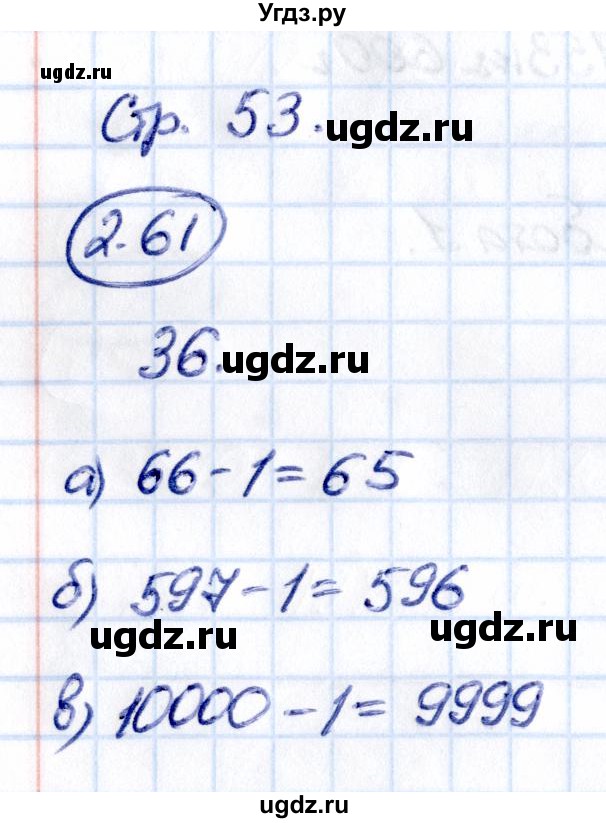 Угдз.ру
ugdz.ru
Стр. 53. ugdz.ru
2.61
36. ugdz.ru
а) 66 - 1 = 65
б) 597 - 1 = 596
ugdz.ru ugdz.ru
в) 10000 - 1 = 9999
ugdz.ru